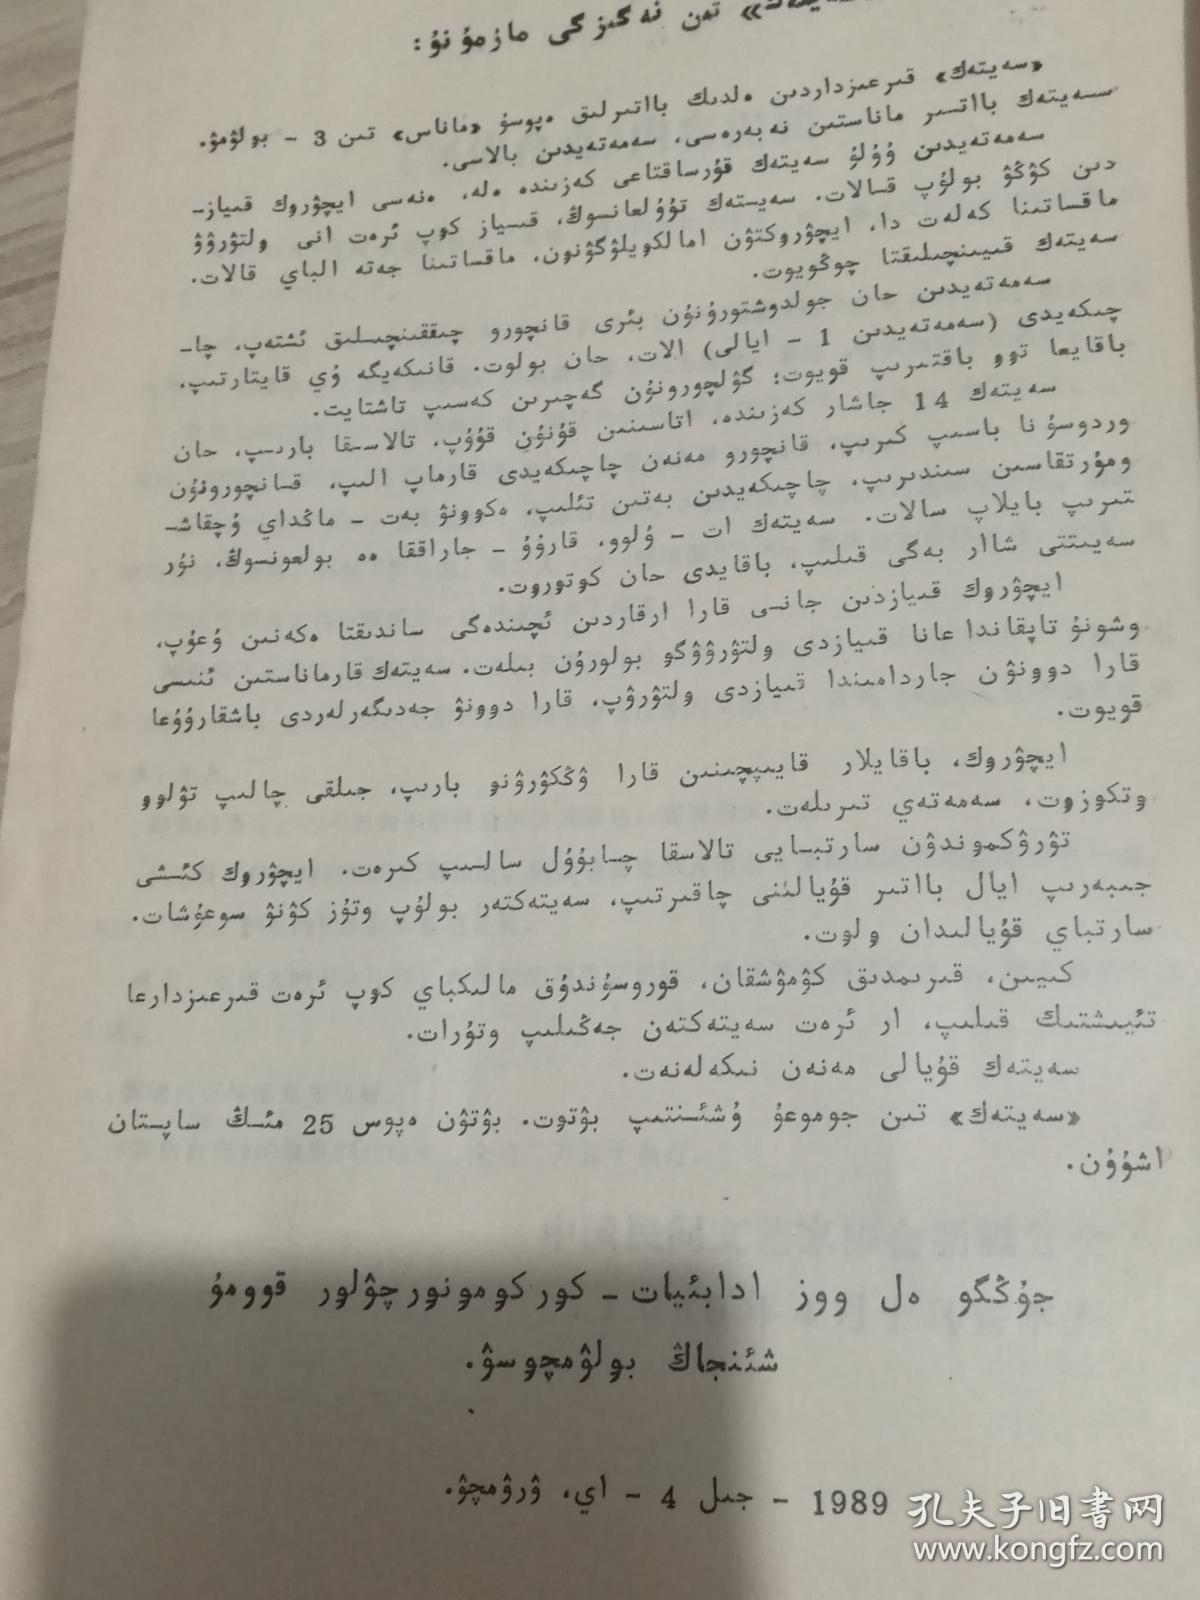 تەن نەگىزگى مازمۇنۇ:
«سەيتەك» قىرعىزداردىن ەلدىك بااتىرلىق ەپوسۇ «ماناس» تىن 3 - بولۉمۉ.
سەيتەك بااتىر ماناستىن نەبەرەسى، سەمەتەيدىن بالاسى.
سەمەتەيدىن ۇۇلۇ سەيتەك قۇرساقتاعى كەزىندە ەلە، ەنەسى ايچۉروك قىياز-
دىن كۉڭۉ بولۇپ قالات. سەيتەك تۇۇلعانسوڭ، قىياز كوپ ئرەت انى ولتۉرۉۉ
ماقساتىنا كەلەت دا، ايچۉروكتۉن امالكويلۉگۉنون، ماقساتىنا جەتە الباي قالات.
سەيتەك قىيىنچىلىقتا چوڭويوت.
سەمەتەيدىن حان جولدوشتورۇنۇن بئرى قانچورو چىققىنچىلىق ئشتەپ، چا-
چىكەيدى (سەمەتەيدىن 1 - ايالى) الات، حان بولوت. قانىكەيگە ۉي قايتارتىپ،
باقايعا توو باقتىرىپ قويوت؛ گۉلچورونۉن گەچىرىن كەسىپ تاشتايت.
سەيتەك 14 جاشار كەزىندە، اتاسىنىن قۇنۇن قۇۇپ، تالاسقا بارىپ، حان
وردوسۇنا باسىپ كىرىپ، قانچورو مەنەن چاچىكەيدى قارماپ الىپ، قانچورونۇن
ومۇرتقاسىن سىندىرىپ، چاچىكەيدىن بەتىن تئلىپ، ەكوونۉ بەت - ماڭداي ۇچقاش-
تىرىپ بايلاپ سالات. سەيتەك ات - ۇلوو، قارۇۇ - جاراققا ەە بولعونسوڭ، نۇر
سەيىتتى شاار بەگى قىلىپ، باقايدى حان كوتوروت.
ايچۉروك قىيازدىن جانى قارا ارقاردىن ئچىندەگى ساندىقتا ەكەنىن ۇعۇپ،
وشونۇ تاپقاندا عانا قىيازدى ولتۉرۉۉگو بولورۇن بىلەت. سەيتەك قارماناستىن ئنىسى
قارا دوونۉن جاردامىندا قىيازدى ولتۉرۉپ، قارا دوونۉ جەدىگەرلەردى باشقارۇۇعا
قويوت.
ايچۉروك، باقايلار قايىپچىنىن قارا ۉڭكۉرۉنو بارىپ، جىلقى چالىپ تۉلوو
وتكوزوت، سەمەتەي تىرىلەت.
تۉرۉكموندۉن سارتبايى تالاسقا چابۇۇل سالىپ كىرەت. ايچۉروك كئشى
جىبەرىپ ايال بااتىر قۇيالئنى چاقىرتىپ، سەيتەكتەر بولۇپ وتۇز كۉنۉ سوعۇشات.
سارتباي قۇيالىدان ولوت.
كىيىن، قىرىمدىق كۉمۉشقان، قوروسۇندۇق مالىكباي كوپ ئرەت قىرعىزدارعا
تئيىشتىك قىلىپ، ار ئرەت سەيتەكتەن جەڭىلىپ وتۇرات.
سەيتەك قۇيالى مەنەن نىكەلەنەت.
«سەيتەك» تىن جوموعۇ ۇشئنتىپ بۉتوت. بۉتۉن ەپوس 25 مئڭ ساپتان
اشۇۇن.
جۇڭگو ەل ووز ادابئيات - كوركومونورچۉلور قوومۇ
شئنجاڭ بولۉمچوسۉ.
1989 - جىل 4 - اي، ۉرۉمچۉ.
孔夫子旧书网
www.kongfz.com